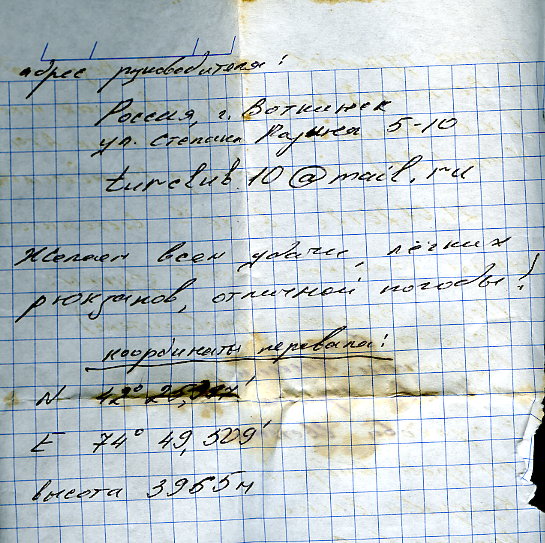 адрес руководителя:
Россия, г. Воткинск
ул. Степана Разина 5-10
turclub10@mail.ru
Желаем всем удачи, лёгких
рюкзаков, отличной погоды!
координаты перевала:
N 42°
E 74° 49,509'
высота 3955м